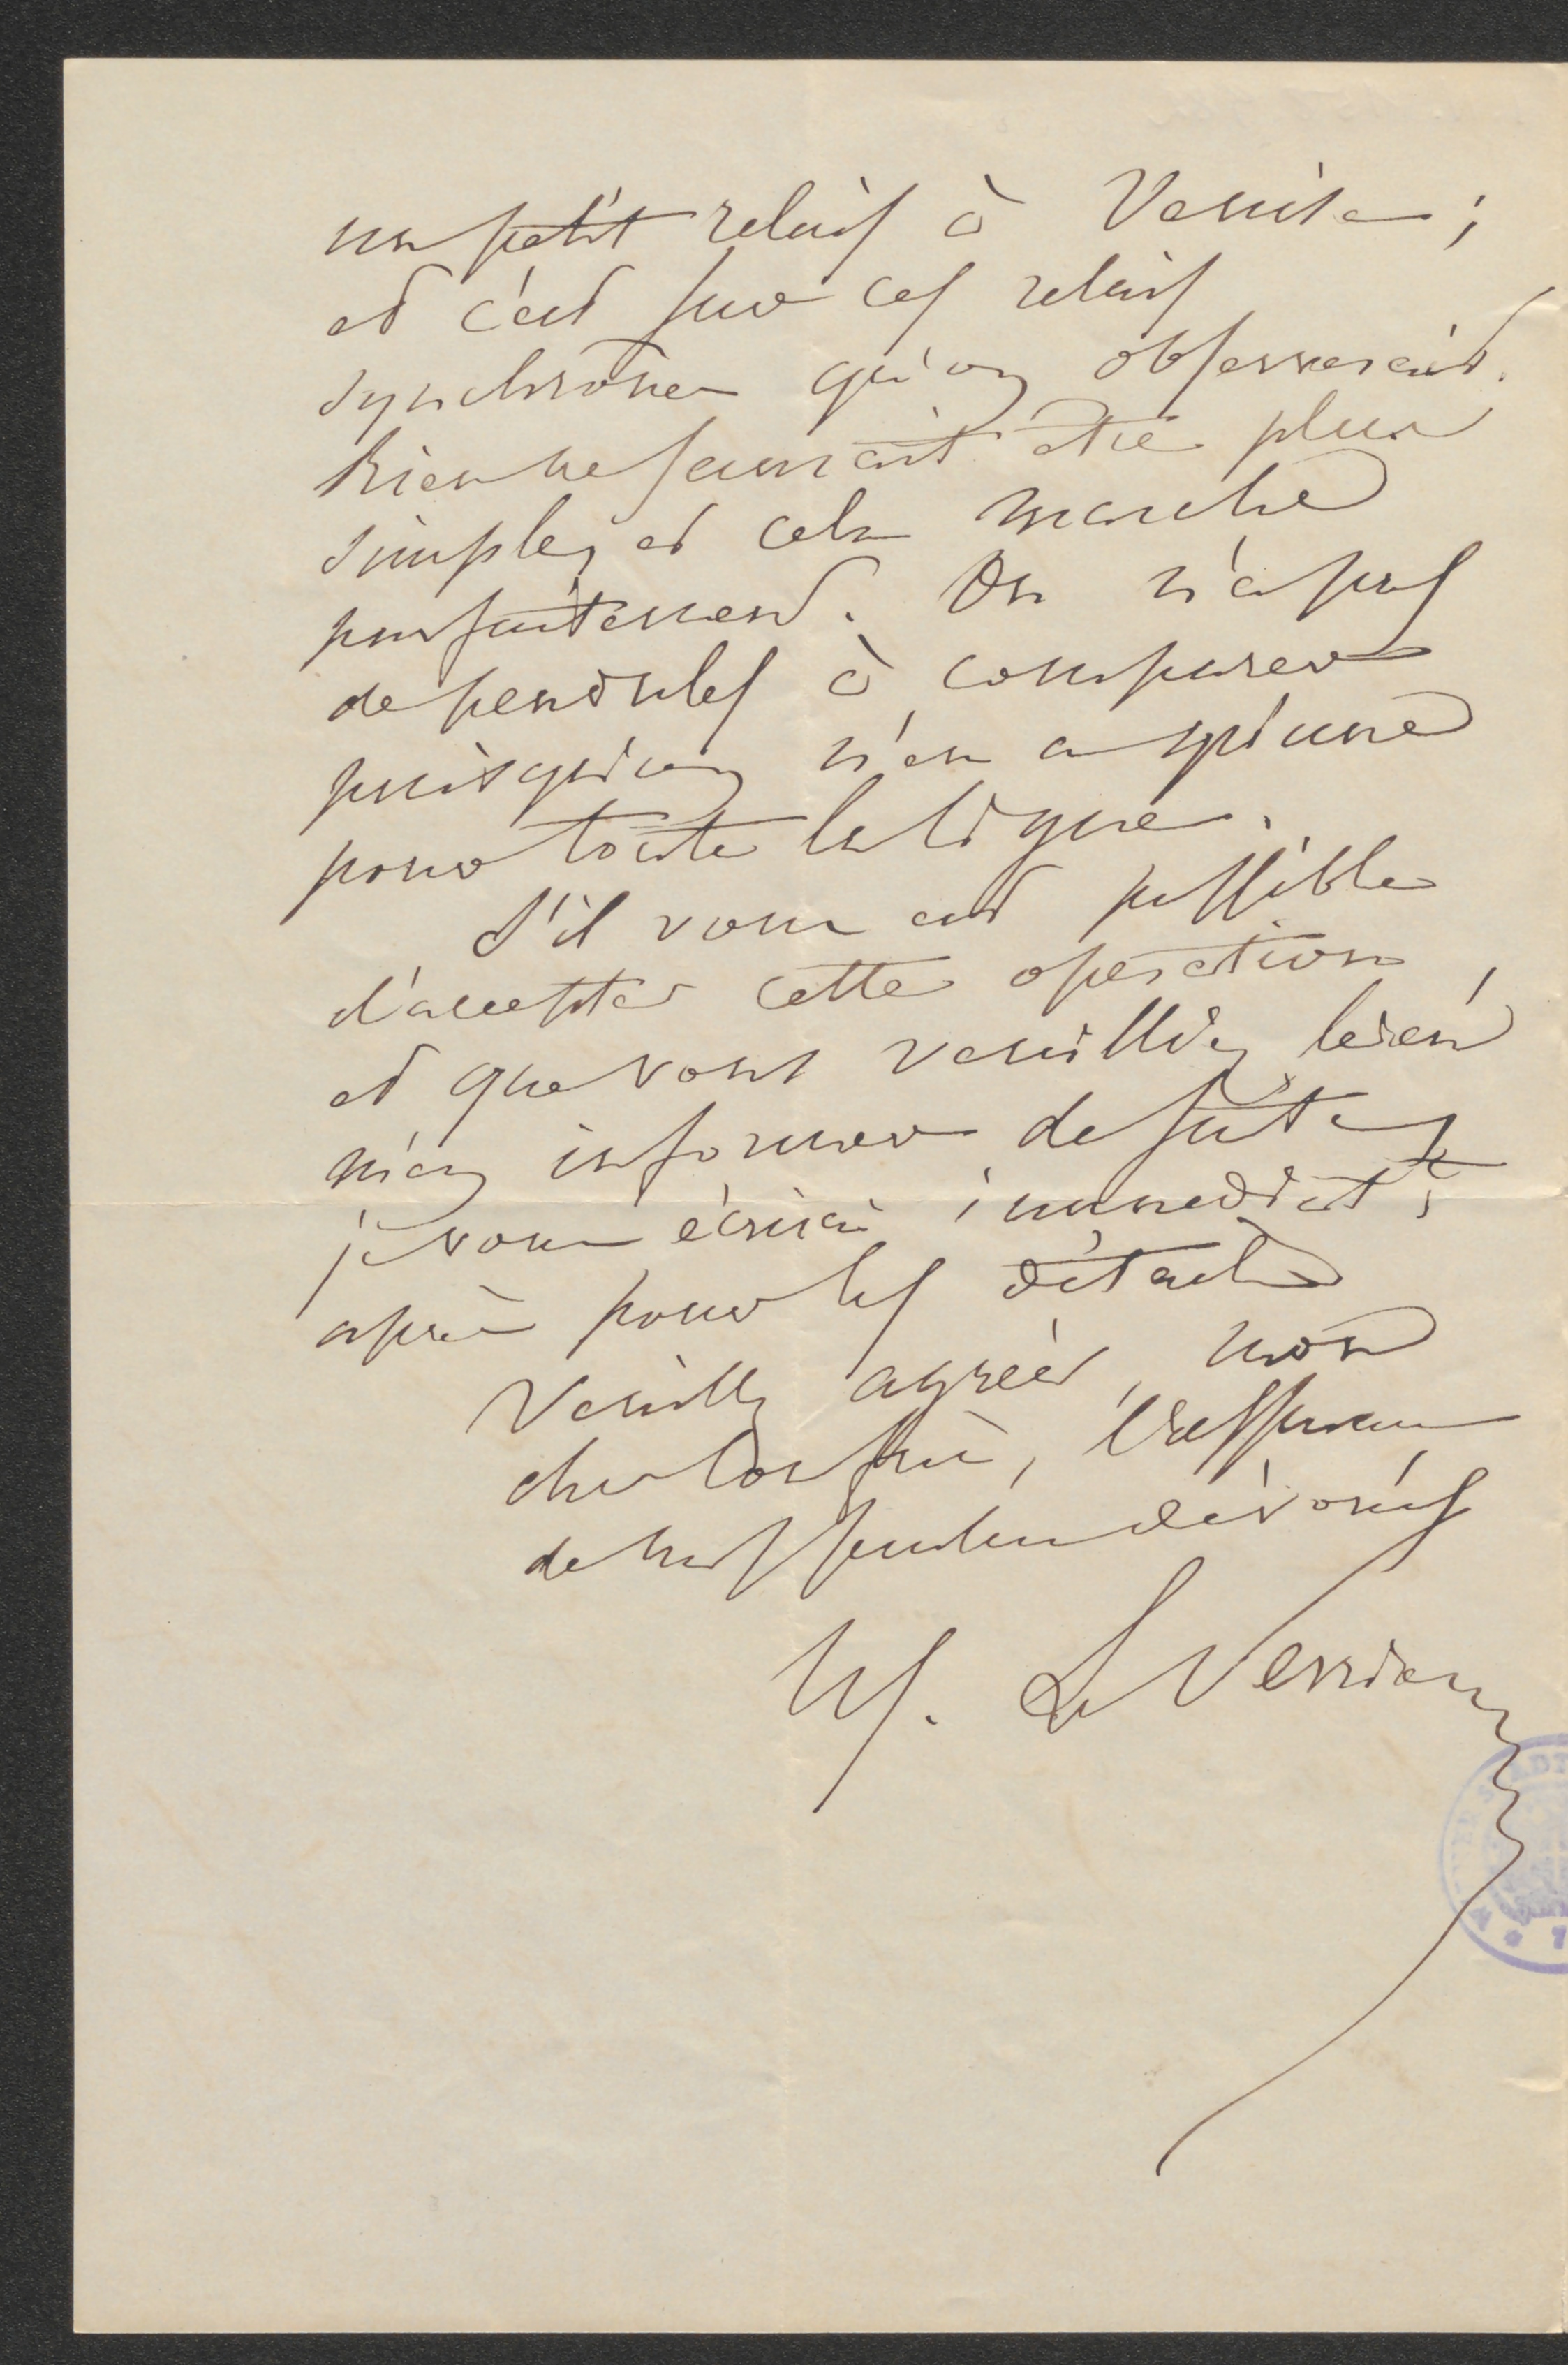 un petit relais à Venise ;
et c'est sur ces relais
synchrones qu'on observerait.
Rien ne saurait être plus
simple, et cela marche
parfaitement. On n'a pas
de pendules à comparer
puisqu'on n'en a qu'une
pour toute la ligne.
S'il vous est possible
d'accepter cette opération,
et que vous veuilliez bien
m'en informer de suite,
je vous écrirai immédiatt
après pour les détails
Veuillez agréer, mon
cher Confrère, l'expression
de mes sentimens dévoués
U J. Le Verrier